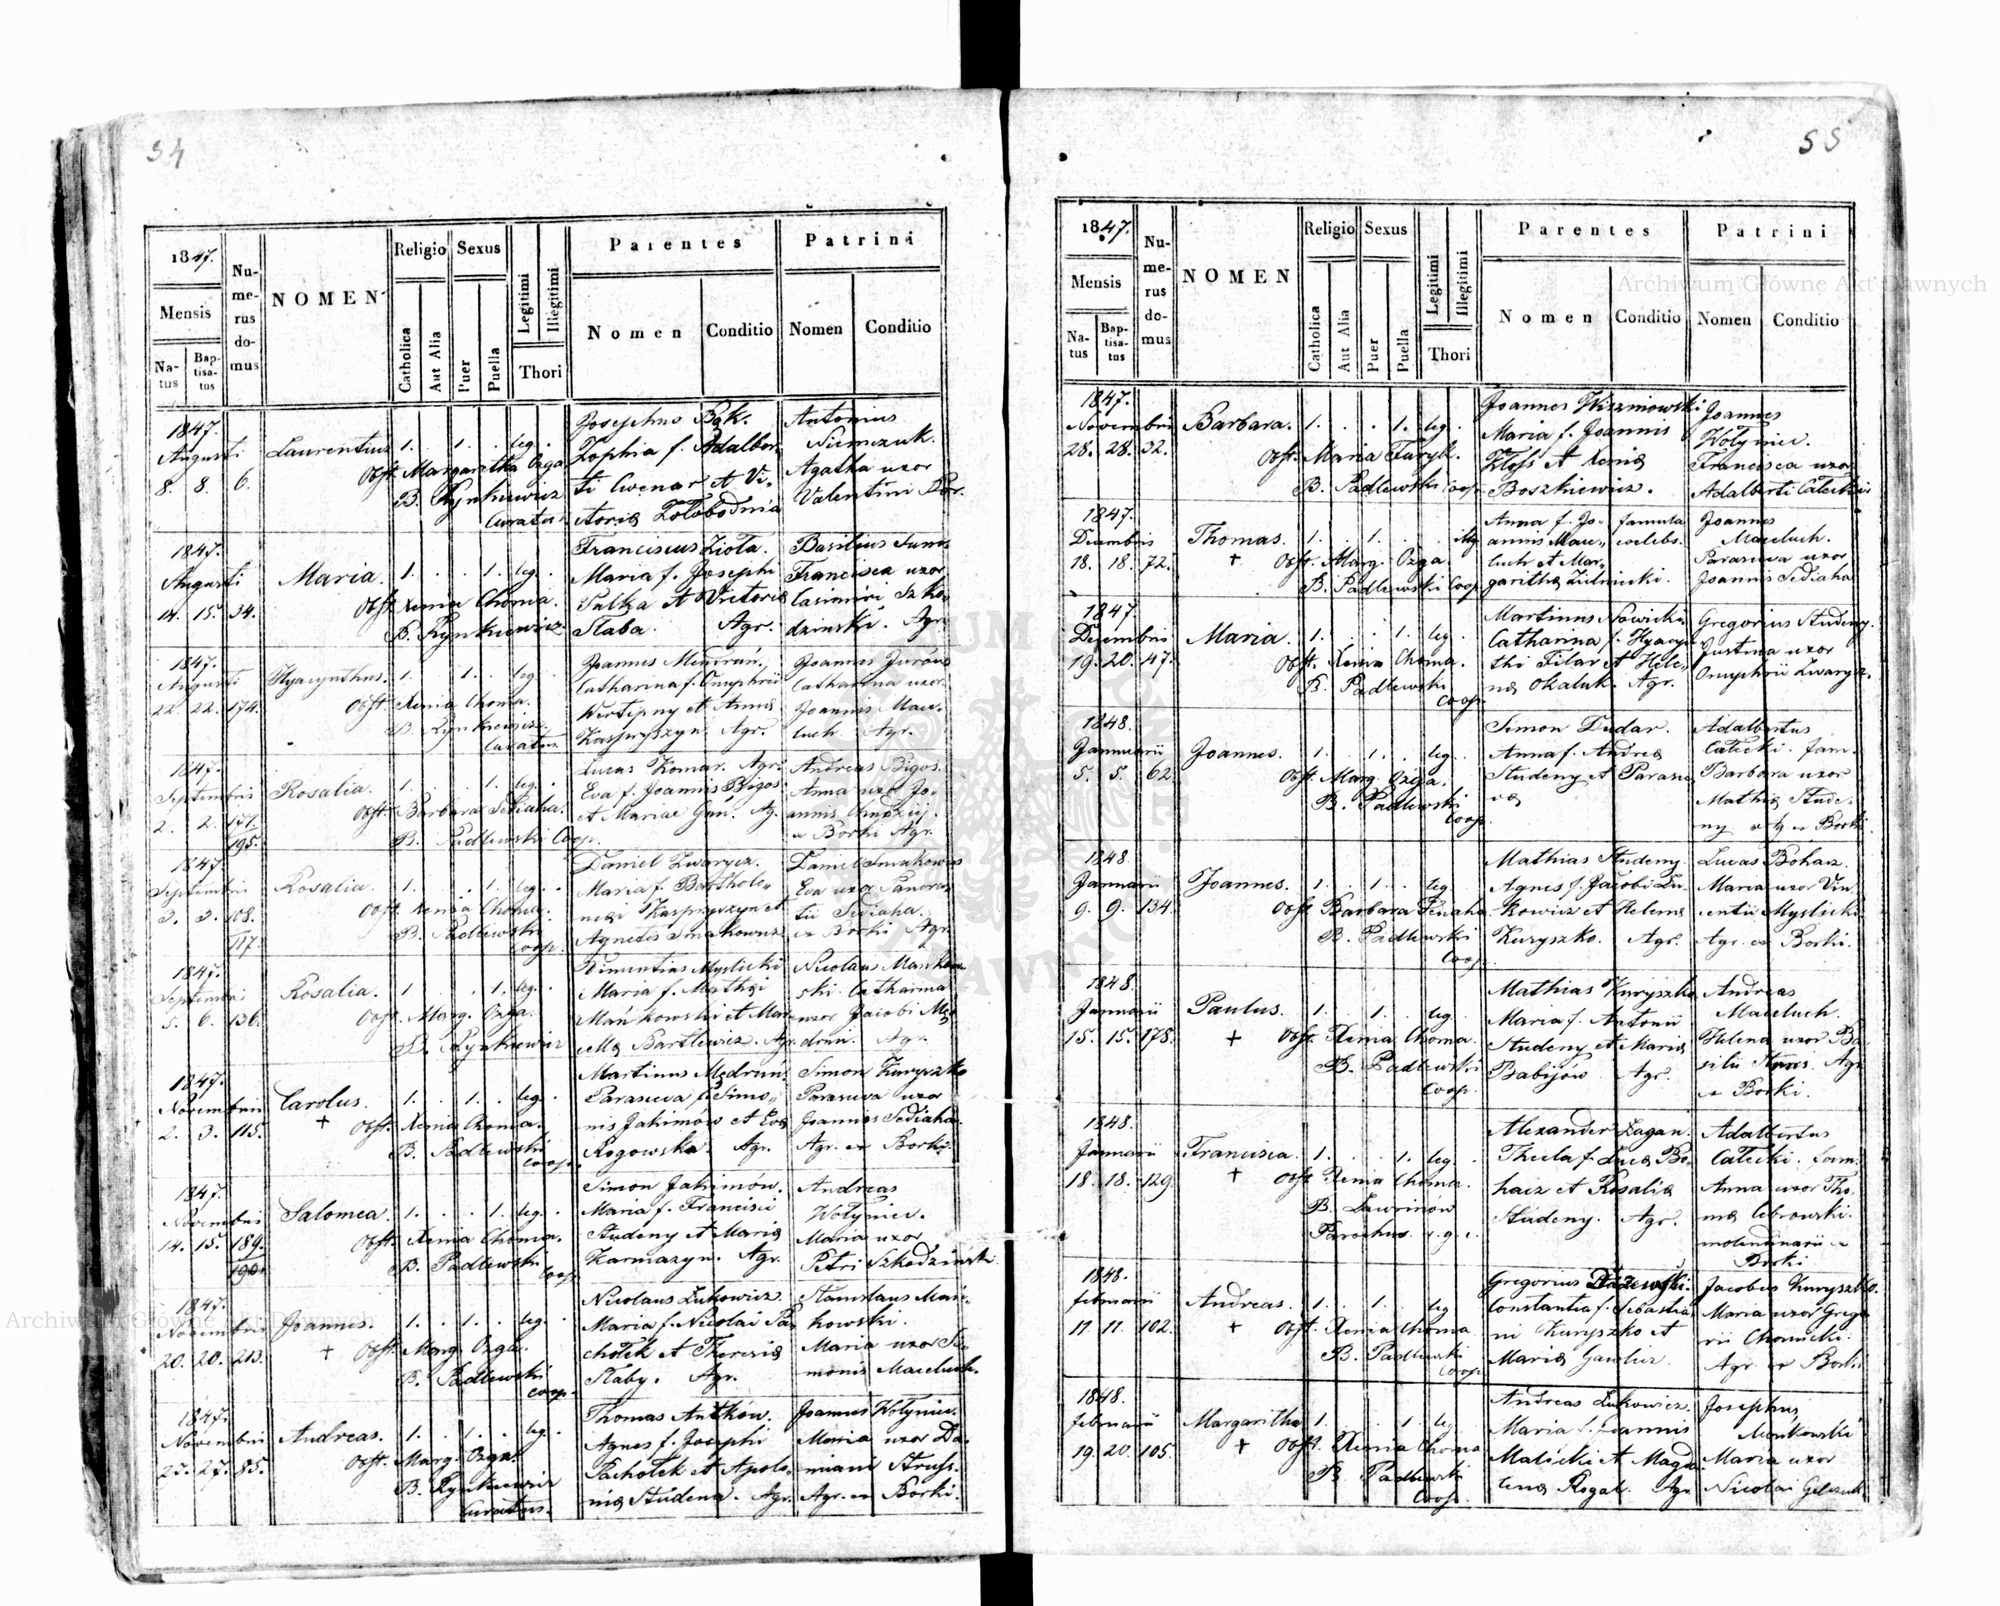 54
1847.
Mensis
Na-
tus
Bap-
tisa-
tus
Nu-
me-
rus
do-
mus
NOMEN
Religio
Catholica
Aut Alia
Sexus
Puer
Puella
Legitimi
Illegitimi
Thori
Parentes
Nomen
Conditio
Patrini
Nomen
Conditio
1847.
Augusti
8. 8. 6.
Laurentius 1. 1. leg.
Obst. Margaritha Ozga
B. Rynkiewicz
Curatus
Josephus Bąk.
Zophia f. Adalber
ti Cwenar et Vi-
ctoria
Antonius
Niemczuk.
Agatha uxor
Valentini
1847.
Augusti
14. 15. 34.
Maria. 1. 1. leg.
Obst. Xenia Choma.
B. Rynkiewicz.
Franciscus Ziola.
Maria f. Josephi
Palka et Victoria
Slaba. Agr.
Basilius
Francisca uxor
Casimiri Szko-
dzinski. Agr.
1847.
Augusti
22. 22. 174.
Hyacynthus. 1. 1. leg.
Obst. Xenia Choma.
B. Rynkiewicz.
Curatus
Joannes
Catharina f. Onuphrii
et Anna
Agr.
Joannes
Catharina uxor
Joannis Mace-
luch. Agr.
1847.
Septembris
2. 2. 151.
195.
Rosalia. 1. 1. leg.
Obst. Barbara Fediaha.
B. Padlewski Coop.
Lucas Komar. Agr.
Eva f. Joannis Bigos
et Mariae Agr.
Andreas Bigos.
Anna uxor Jo-
annis
ex Borki Agr.
1847.
Septembris
3. 3. 108.
117.
Rosalia. 1. 1. leg.
Obst. Xenia Choma.
B. Padlewski
Coop.
Daniel Zwarycz.
Maria f. Bartholo-
mei Kasprzyszyn et
Agnetis Smakowicz
Daniel Smakowicz
Eva uxor Pancra-
tii Fediaha.
ex Borki Agr.
1847.
Septembris
5. 6. 136.
Rosalia. 1. 1. leg.
Obst. Marg. Ozga.
B. Rynkiewicz
Vincentius Myslicki
Maria f. Mathei
Mańkowski et Mar-
Bartlewicz. Agr.
Nicolaus Mańkow-
ski. Catharina
uxor Jacobi
Agr.
1847.
Novembris
2. 3. 115.
Carolus. 1. 1. leg.
+ Obst. Xenia Choma.
B. Padlewski
Coop.
Martinus
Parasceva f. Simo-
nis Jakimów et Eva
Rogowska. Agr.
Simon Kuryszko
Parasceva uxor
Joannes Fediaha.
Agr. ex Borki.
1847.
Novembris
14. 15. 189.
190.
Salomea. 1. 1. leg.
Obst. Xenia Choma.
B. Padlewski
Coop.
Simon Jakimów.
Maria f. Francisci
Studeny et Maria
Karmazyn. Agr.
Andreas
Wołyniec.
Maria uxor
Petri Szkodzinski
1847.
Novembris
20. 20. 213.
Joannes. 1. 1. leg.
+ Obst. Marg. Ozga.
B. Padlewski
Coop.
Nicolaus Łukowicz.
Maria f. Nicolai Pa-
chołek et Theresia
Słaby. Agr.
Stanislaus Mań-
kowski.
Maria uxor Si-
monis Maceluch.
1847.
Novembris
27. 27. 85.
Andreas. 1. 1. leg.
Obst. Marg. Ozga.
B. Rynkiewicz
Curatus.
Thomas Antków.
Agnes f. Josephi
Pachołek et Apolo-
nia Studena. Agr.
Joannes Wołyniec.
Maria uxor Da-
miani
Agr. ex Borki.
55
1847.
Mensis
Na-
tus
Bap-
tisa-
tus
Nu-
me-
rus
do-
mus
NOMEN
Religio
Catholica
Aut Alia
Sexus
Puer
Puella
Legitimi
Illegitimi
Thori
Parentes
Nomen
Conditio
Patrini
Nomen
Conditio
1847.
Novembris
28. 28. 32.
Barbara. 1. 1. leg.
Obst. Maria Furyk.
B. Padlewski Coop.
Joannes Wiszniowski
Maria f. Joannis
et Xenia
Boszkiewicz.
Joannes
Wołyniec.
Francisca uxor
Adalberti Całecki
1847.
Decembris
18. 18. 72.
Thomas. 1. 1. illeg
+ Obst. Marg. Ozga
B. Padlewski Coop.
Anna f. Jo- famula
annis Mace- coelebs.
luch et Mar-
garitha Zielnicki.
Joannes
Maceluch.
Parasceva uxor
Joannis Fediaha
1847
Decembris
19. 20. 47.
Maria. 1. 1. leg.
Obst. Xenia Choma.
B. Padlewski
Coop.
Martinus Nowicki
Catharina f. Hyacyn-
thi Filar et Hele-
na Okaluk. Agr.
Gregorius Studeny.
Justina uxor
Onuphrii Zwarycz.
1848.
Januarii
5. 5. 62.
Joannes. 1. 1. leg.
Obst. Marg. Ozga.
B. Padlewski
Coop.
Simon Dudar.
Anna f. Andrea
Studeny et Parasce
va
Adalbertus
Całecki. fam.
Barbara uxor
Mathia Stude-
ny ex Borki
1848.
Januarii
9. 9. 134.
Joannes. 1. 1. leg
Obst. Barbara Fediaha.
B. Padlewski
Coop.
Mathias Studeny.
Agnes f. Jacobi Łu-
kowicz et Helena
Kuryszko. Agr.
Lucas Bohacz.
Maria uxor Vin-
centii Myslicki.
Agr. ex Borki.
1848.
Januarii
15. 15. 178.
Paulus. 1. 1. leg.
+ Obst. Xenia Choma.
B. Padlewski
Coop.
Mathias Kuryszko
Maria f. Antonii
Studeny et Maria
Babijów Agr.
Andreas
Maceluch.
Helena uxor Ba-
silii Agr.
ex Borki.
1848.
Januarii
18. 18. 129
Francisca. 1. 1. leg.
+ Obst. Xenia Choma.
B. Ławrinów
Parochus r. g. c.
Alexander Zagan.
Thecla f. Luca Bo-
hacz et Rosalia
Studeny. Agr.
Adalbertus
Całecki. fam.
Anna uxor Tho-
ma Cebrowski.
molendinarii ex
Borki
1848.
Februarii
11. 11. 102.
Andreas. 1. 1. leg
+ Obst. Xenia Choma
B. Padlewski
Coop.
Gregorius
Constantia f. Sebastia
ni Kuryszko et
Maria Gawlicz
Jacobus Kuryszko.
Maria uxor Grego
rii Chomicki.
Agr. ex Borki
1848.
Februarii
19. 20. 105.
Margaritha 1. 1. leg.
+ Obst. Xenia Choma
B. Padlewski
Coop.
Andreas Łukowicz.
Maria f. Joannis
Malicki et Magda-
lena Rogal. Agr.
Josephus
Mońkowski
Maria uxor
Nicolai
Archiwum Główne Akt Dawnych
Archiwum Główne Akt Dawnych